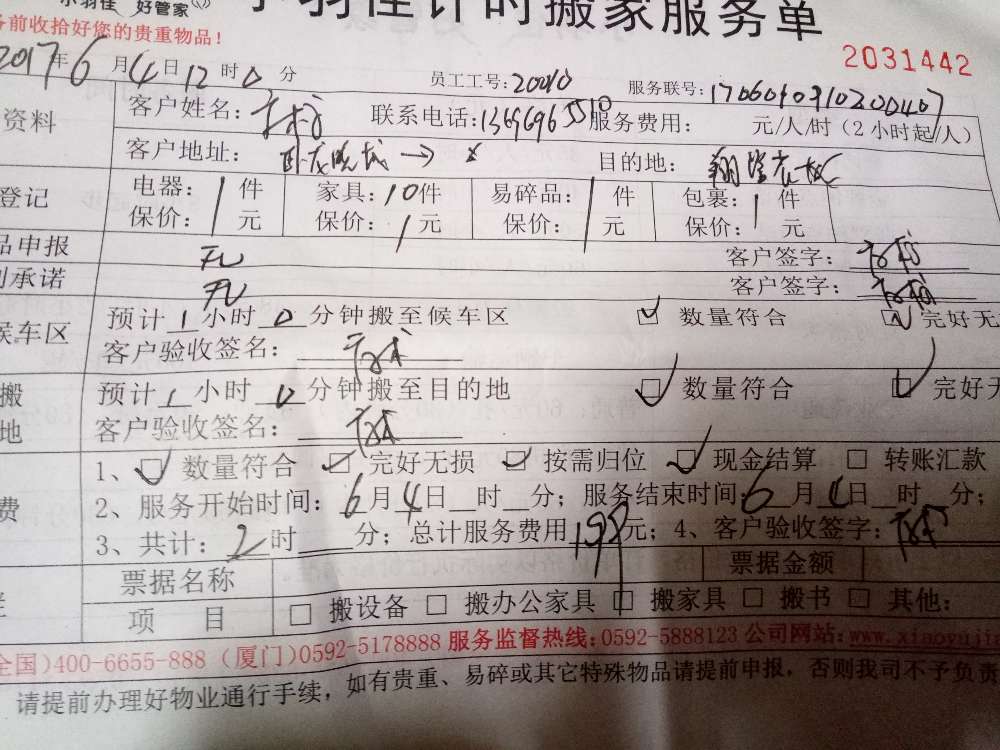 小羽佳 好管家
小羽佳计时搬家服务单
备前收拾好您的贵重物品！
2031442
2017年6月4日12时0分 员工工号：20010 服务联号：
资料 客户姓名： 联系电话：13696965510 服务费用： 元/人/时（2小时起/人）
客户地址： 目的地：
登记 电器：1件 家具：10件 易碎品：1件 包裹：1件
保价：1元 保价：1元 保价：1元 保价：1元
品申报 无 客户签字：
承诺 无 客户签字：
候车区 预计1小时0分钟搬至候车区 ☑ 数量符合 ☑ 完好无
客户验收签名：
搬 预计1小时0分钟搬至目的地 ☑ 数量符合 ☑ 完好无
地 客户验收签名：
1、☑ 数量符合 ☑ 完好无损 ☑ 按需归位 ☑ 现金结算 □ 转账汇款
费 2、服务开始时间：6月4日__时__分；服务结束时间：6月4日__时__分；
3、共计：2时____分；总计服务费用199元；4、客户验收签字：
票据名称 票据金额
项 目 □ 搬设备 □ 搬办公家具 □ 搬家具 □ 搬书 □ 其他：
全国)400-6655-888 (厦门)0592-5178888 服务监督热线：0592-5888123 公司网站：www.xiaoyuji
请提前办理好物业通行手续，如有贵重、易碎或其它特殊物品请提前申报，否则我司不予负责